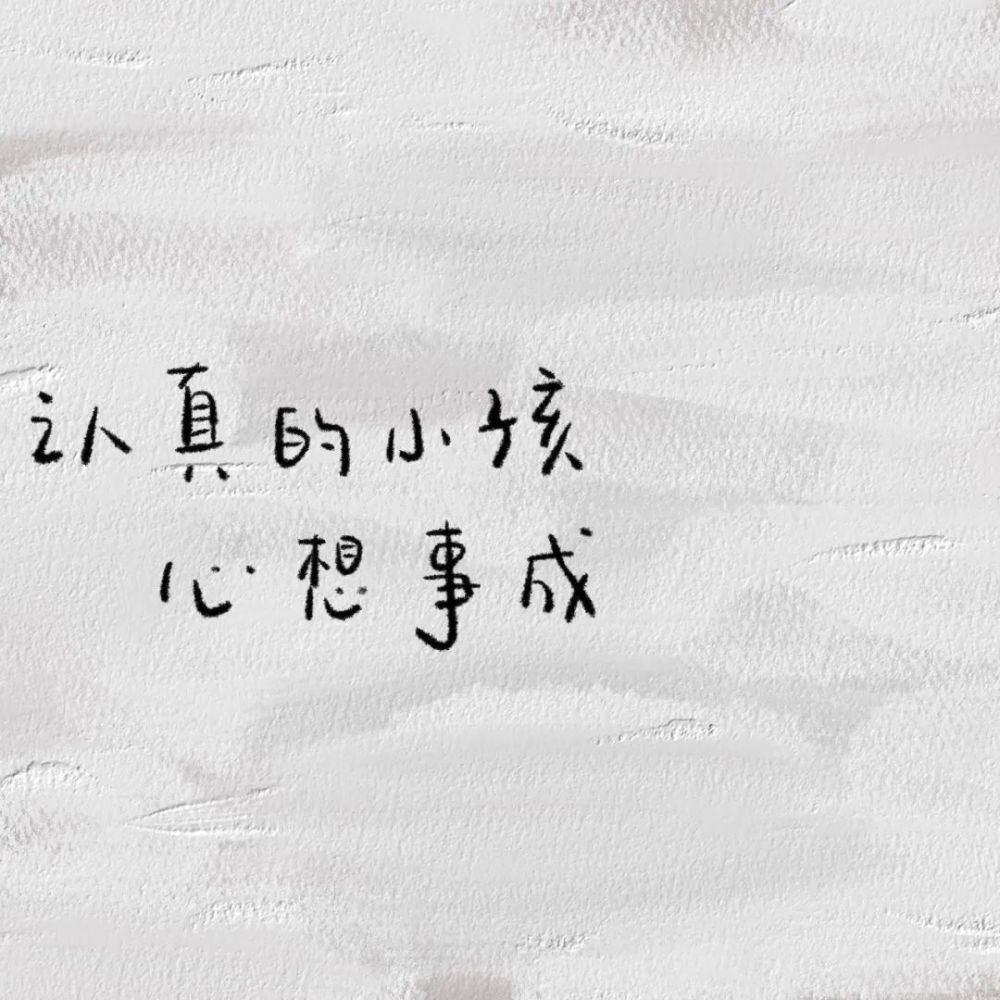 认真的小孩
心想事成